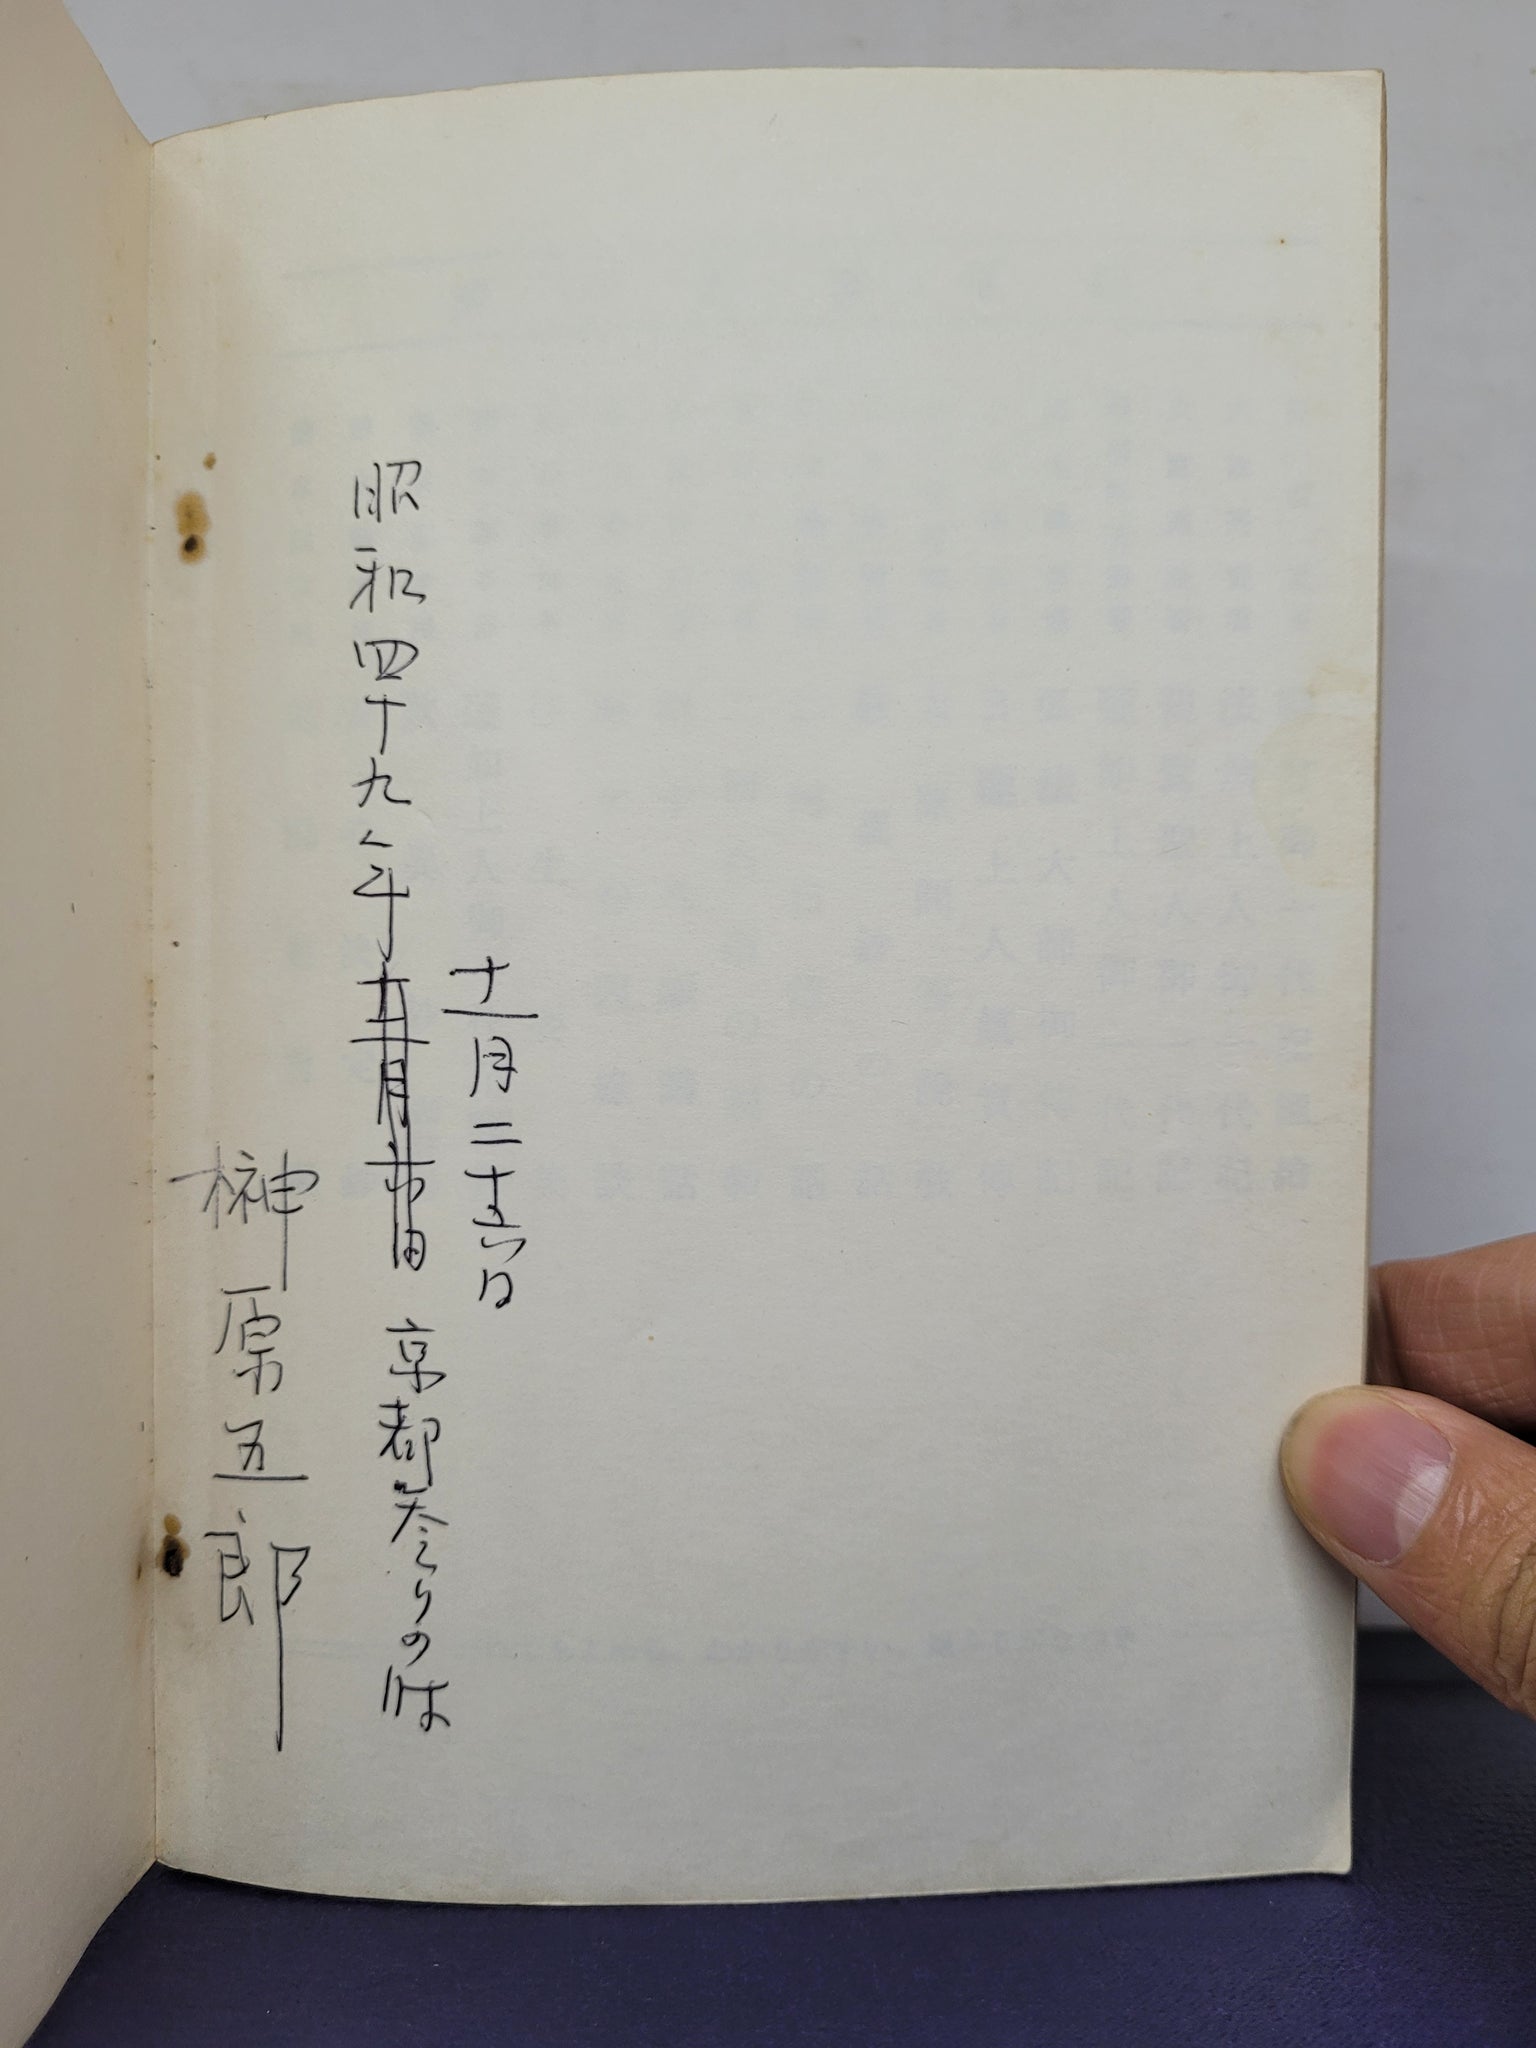 十一月二十五六日
昭和四十九年 京都参りの時
榊原五郎